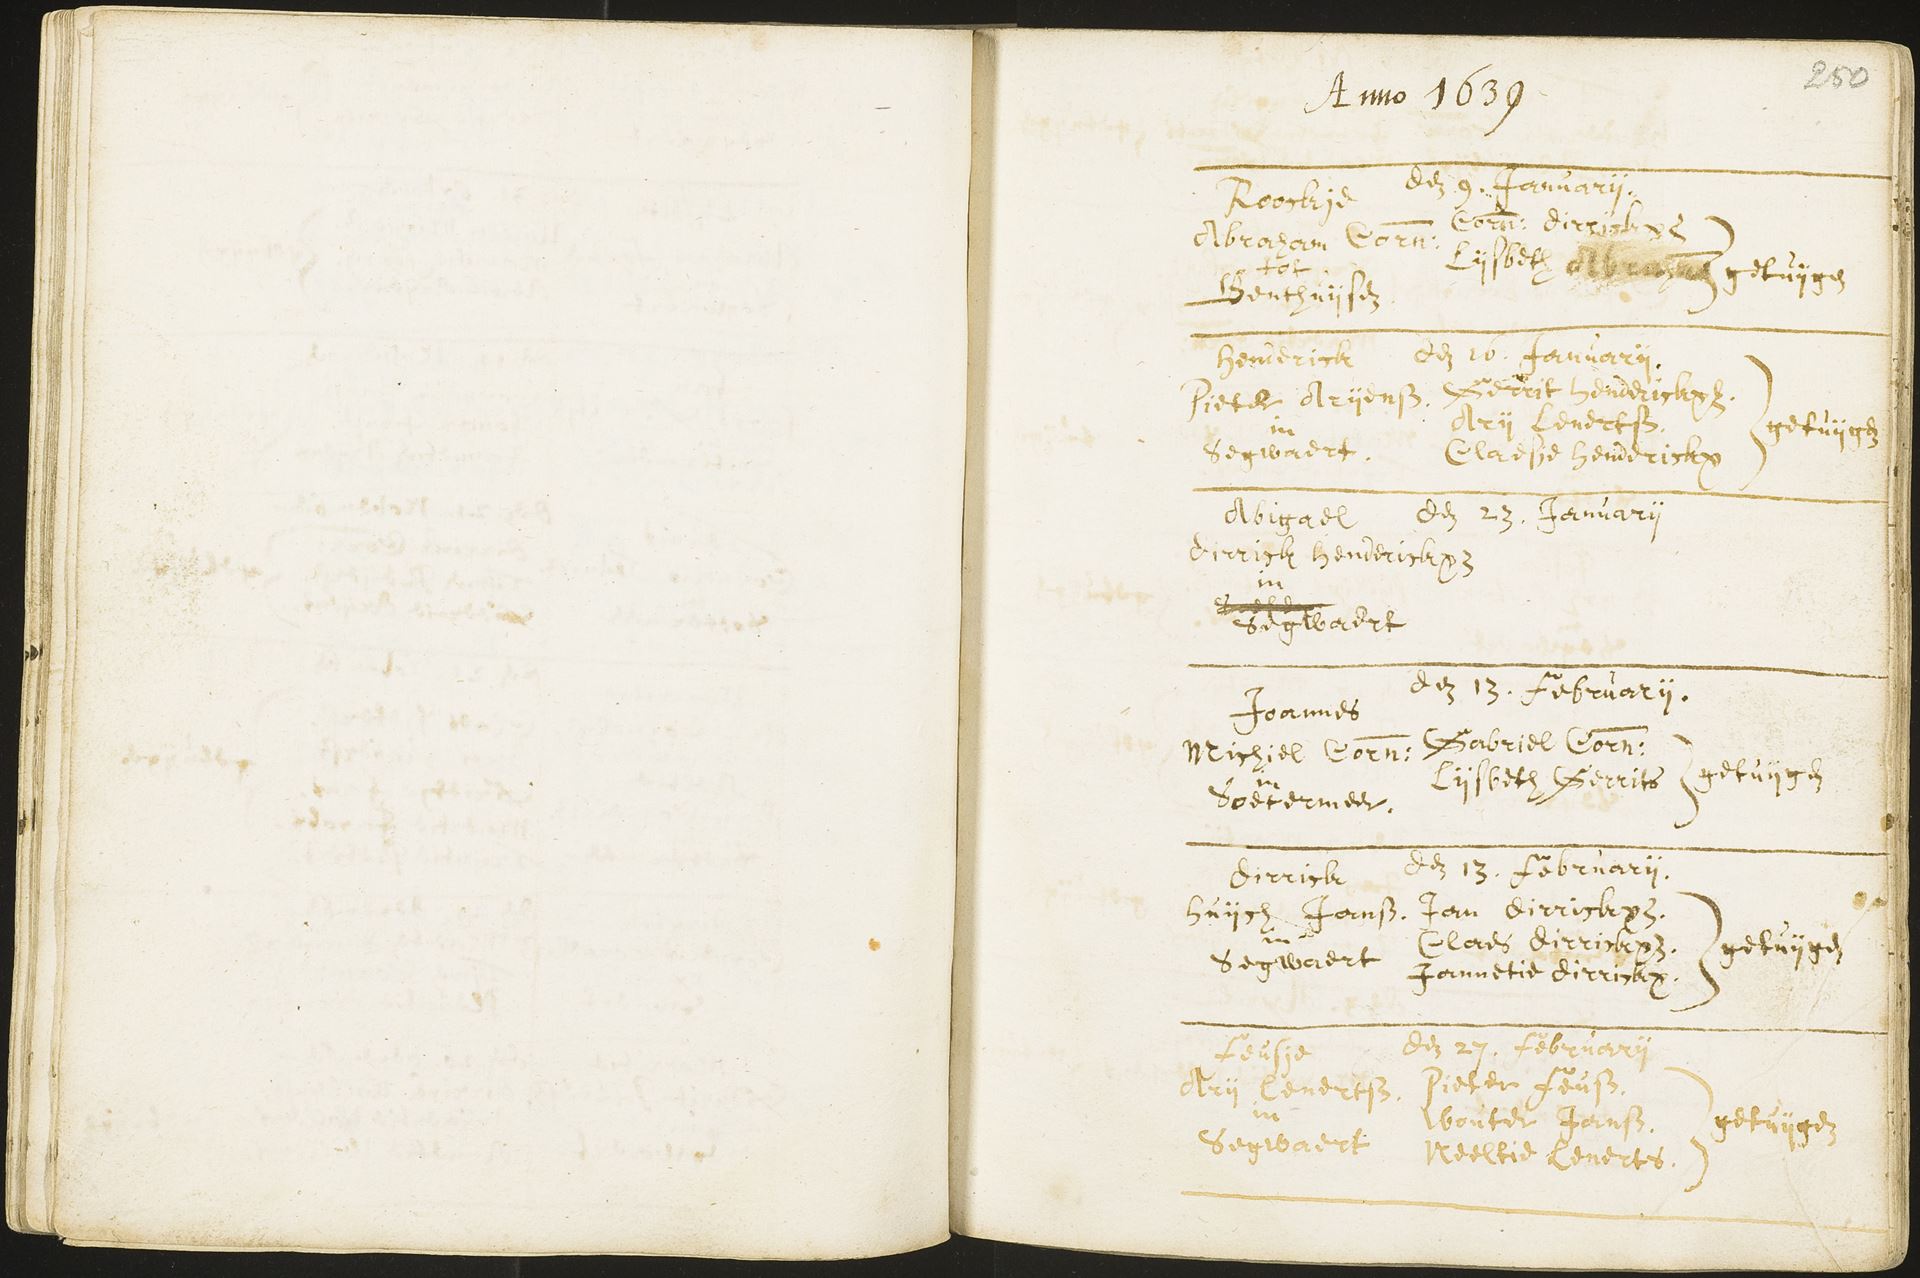 250
Anno 1639
Roockje den 9. Januarij.
Abraham Corn: Corn: dirrickxs
tot Lijsbeth Abrahams getuijgen
Benthuijsen
Henderick den 16. Januarij.
Pieter Arijensz. Gerrit Henderickxz.
in Arij Lenertsz. getuijgen
Segwaert. Claesje Henderickx
Abigael den 23. Januarij
dirrick Henderickxz
in
Segwaert
Joannes den 13. Februarij.
Michiel Corn: Gabriel Corn:
in Lijsbeth Gerrits getuijgen
Soetermeer.
dirrick den 13. Februarij.
Huijch Jansz. Jan dirrickxz.
in Claes dirrickxz. getuijgen
Segwaert Jannetie dirrickx.
Feusje den 27. Februarij
Arij Lenertsz. Pieter Feusz.
in Wouter Jansz. getuijgen
Segwaert Neeltie Lenerts.